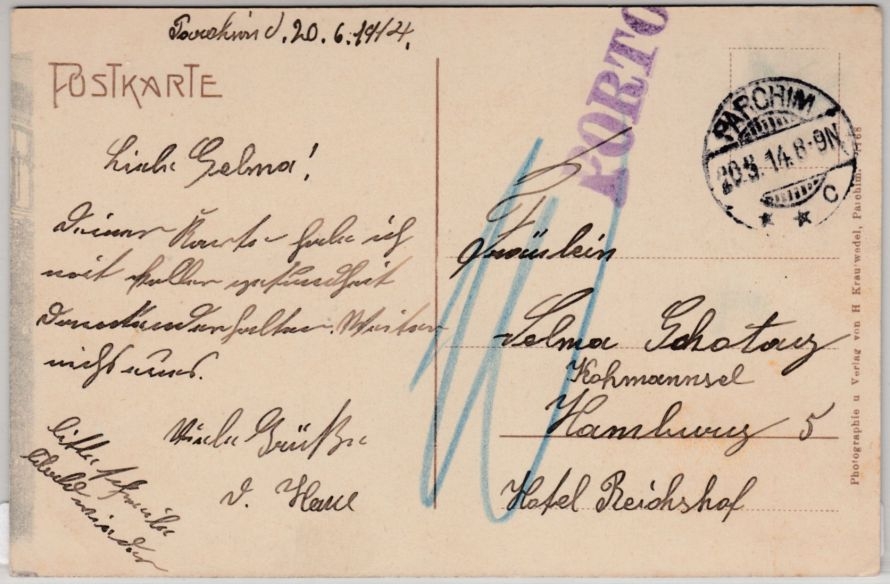 20.6.1914.
POSTKARTE
Liebe Selma!
Deine Karte habe ich
mit
dankend erhalten. Weiter
nichts neues.
Viele Grüße
d.
bitte schreibe
bald wieder
PORTO
PARCHIM
20.6.14.8-9N
* * C
10
Fräulein
Selma
Hamburg 5
Hotel Reichshof
Photographie u Verlag von H Krauwedel, Parchim.